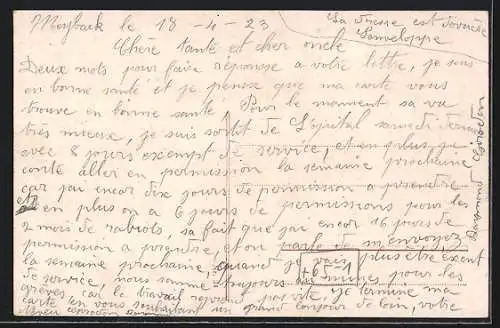 Meyback le 18-4-23
La Dresse est derrière
l'anveloppe
Chère tante et cher oncle
Deux mots pour faire réponse a votre lettre, je suis
en bonne santé et je pense que ma carte vous
trouve en bonne santé, Pour le moment sa va
très mieux, je suis sortit de L'opital samedi dernier
avec 8 jours exempt de service, et en plus je
conté aller en permission la semaine prochaine
car jai encor dix jours de permission a prendre
et en plus on a 6 jours de permissions pour les
2 mois de rabiots, sa fait que jai encor 16 jours de
permission a prendre, et on parle de m'envoyez
la semaine prochaine, quand je vais plus être exent
de service, nous somme toujours au mines, pour les
grèves, car le travail reprend pas vite, Je termine ma
carte en vous souhaitant un grand bonjour de loin, votre
Raymond
+65-1